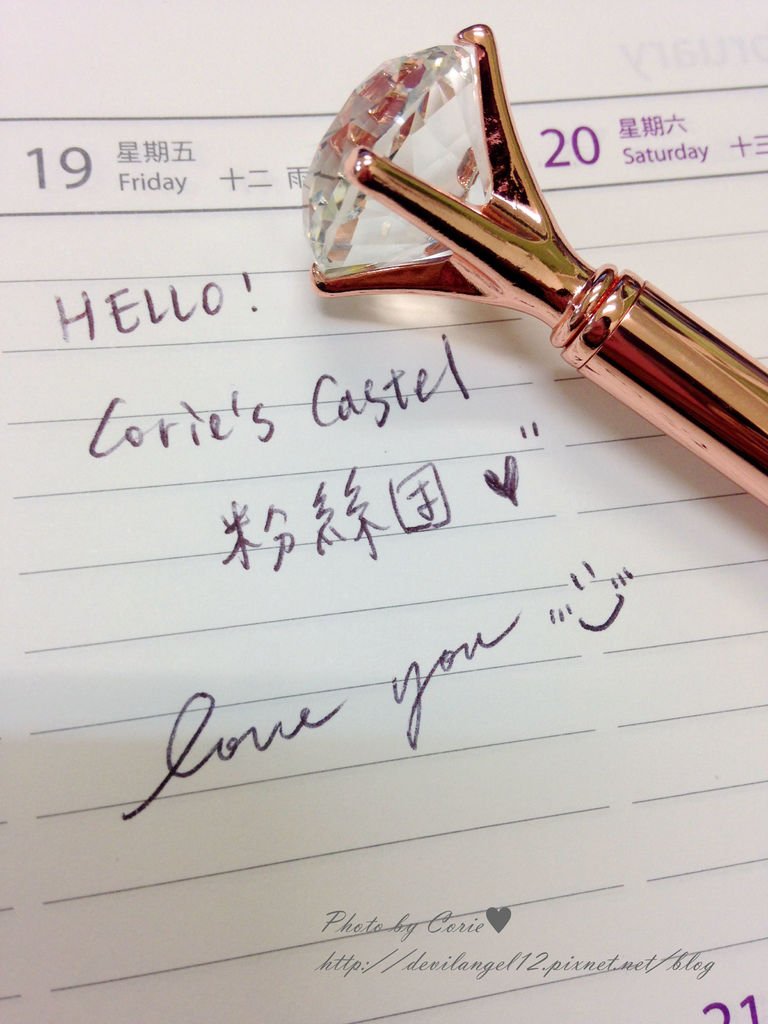 19 星期五 Friday 十二 雨
20 星期六 Saturday 十三
HELLO!
Corie's Castel
粉絲团 ♥"
love you
Photo by Corie♥
http://devilangel12.pixnet.net/blog
21